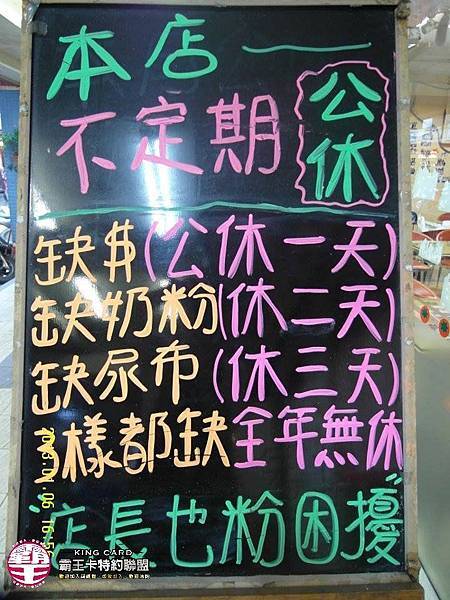 本店——
公休
不定期
缺$(公休一天)
缺奶粉(休二天)
缺尿布(休三天)
樣都缺全年無休
"店長也粉困擾"
KING CARD
霸王卡特約聯盟